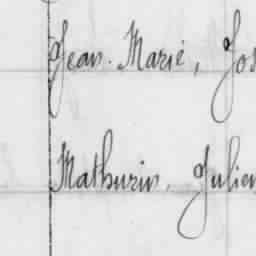 Jean. Marie, Jos
Mathurin, Julien